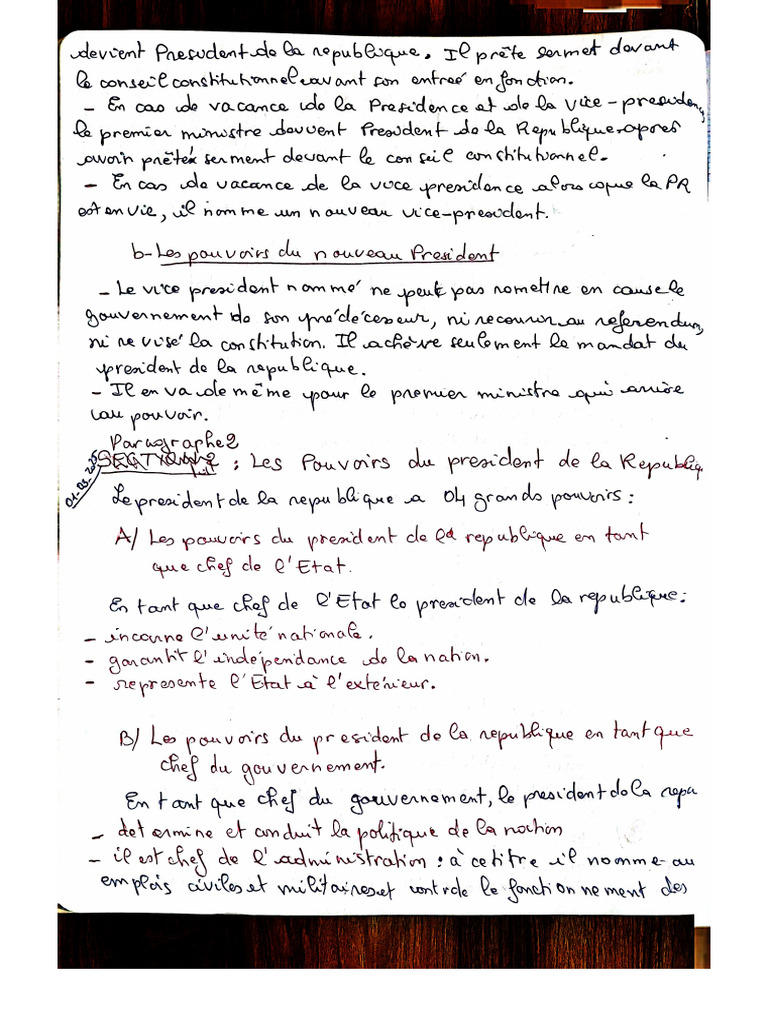 devient President de la republique. Il prête serment devant
le conseil constitutionnel avant son entreé en fonction.
- En cas de vacance de la Presidence et de la vice-presidence,
le premier ministre devient President de la Republique apres
avoir prêter serment devant le conseil constitutionnel.
- En cas de vacance de la vice presidence alors que le PR
est en vie, il nomme un nouveau vice-president.
b- Les pouvoirs du nouveau President
- Le vice president nommé ne peut pas remettre en cause le
gouvernement de son prédécesseur, ni recourir au referendum,
ni revisé la constitution. Il achève seulement le mandat du
president de la republique.
- Il en va de même pour le premier ministre qui arrive
au pouvoir.
Paragraphe 2
: Les Pouvoirs du president de la Republiq
Le president de la republique a 04 grands pouvoirs :
A/ Les pouvoirs du president de la republique en tant
que chef de l'Etat.
En tant que chef de l'Etat le president de la republique :
- incarne l'unité nationale.
- garantit l'indépendance de la nation.
- represente l'Etat à l'extérieur.
B/ Les pouvoirs du president de la republique en tant que
chef du gouvernement.
En tant que chef du gouvernement, le president de la repu
- determine et conduit la politique de la nation
- il est chef de l'administration : à ce titre il nomme au
emplois civiles et militaires et controle le fonctionnement des